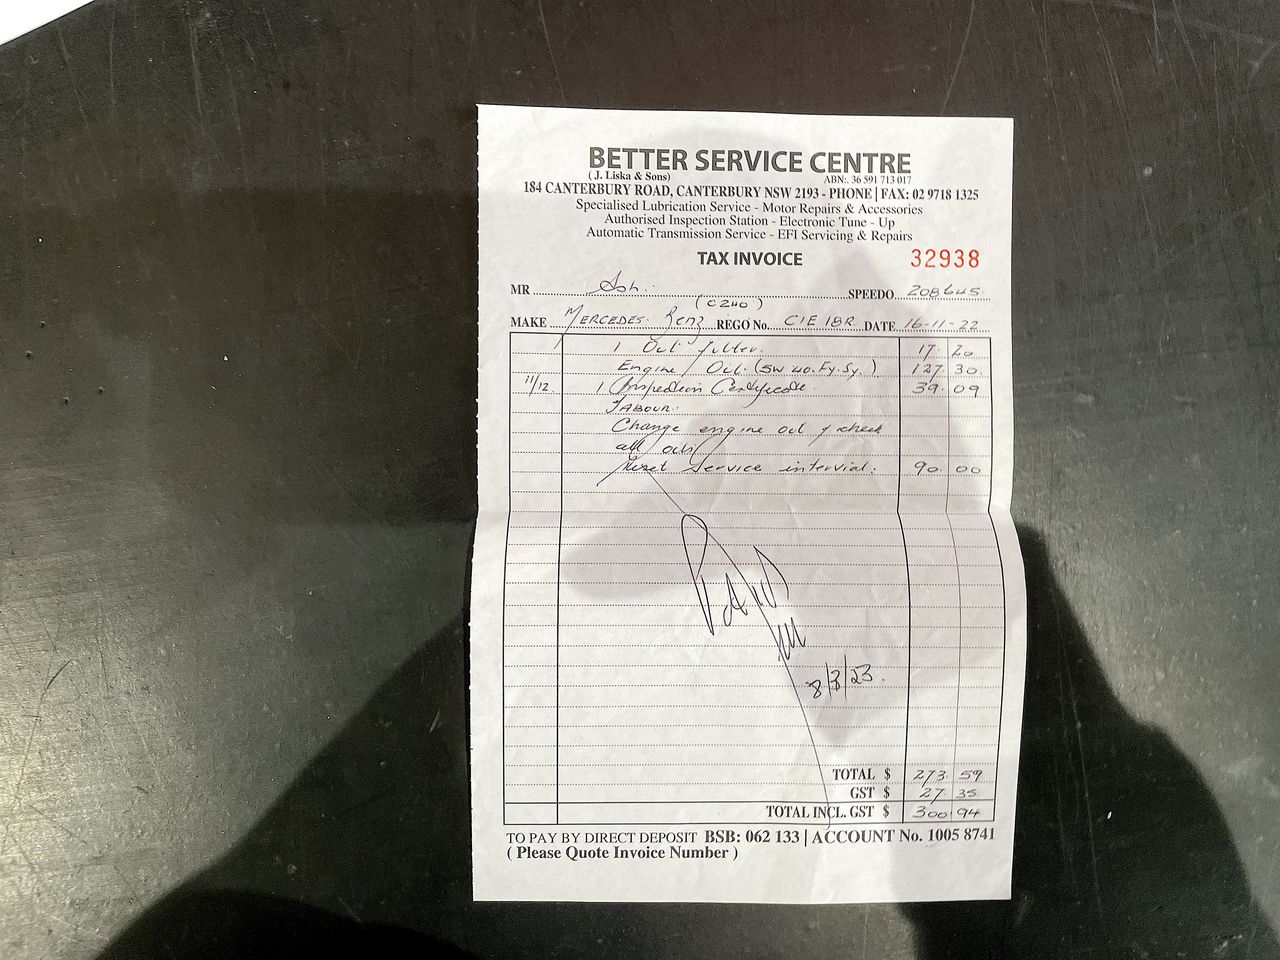 BETTER SERVICE CENTRE
( J. Liska & Sons) ABN:. 36 591 713 017
184 CANTERBURY ROAD, CANTERBURY NSW 2193 - PHONE | FAX: 02 9718 1325
Specialised Lubrication Service - Motor Repairs & Accessories
Authorised Inspection Station - Electronic Tune - Up
Automatic Transmission Service - EFI Servicing & Repairs
TAX INVOICE 32938
MR Ash. SPEEDO 208645
(C240)
MAKE MERCEDES. Benz REGO No. C1E 18R DATE 16-11-22
1 Oil filter. 17. 20
Engine Oil. (5W 40. Fy. Sy.) 127. 30
11/12 1 Inspection Certificate 39. 09
LABOUR.
Change engine oil & check
all oils
Reset service intervial. 90. 00
8/3/23.
TOTAL $ 273. 59
GST $ 27 35
TOTAL INCL. GST $ 300 94
TO PAY BY DIRECT DEPOSIT BSB: 062 133 | ACCOUNT No. 1005 8741
( Please Quote Invoice Number )